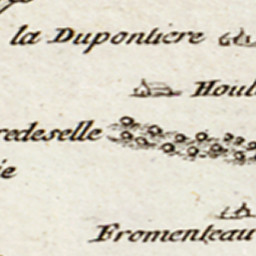 la Dupontiere
Houl
redeselle
ie
Fromenteau